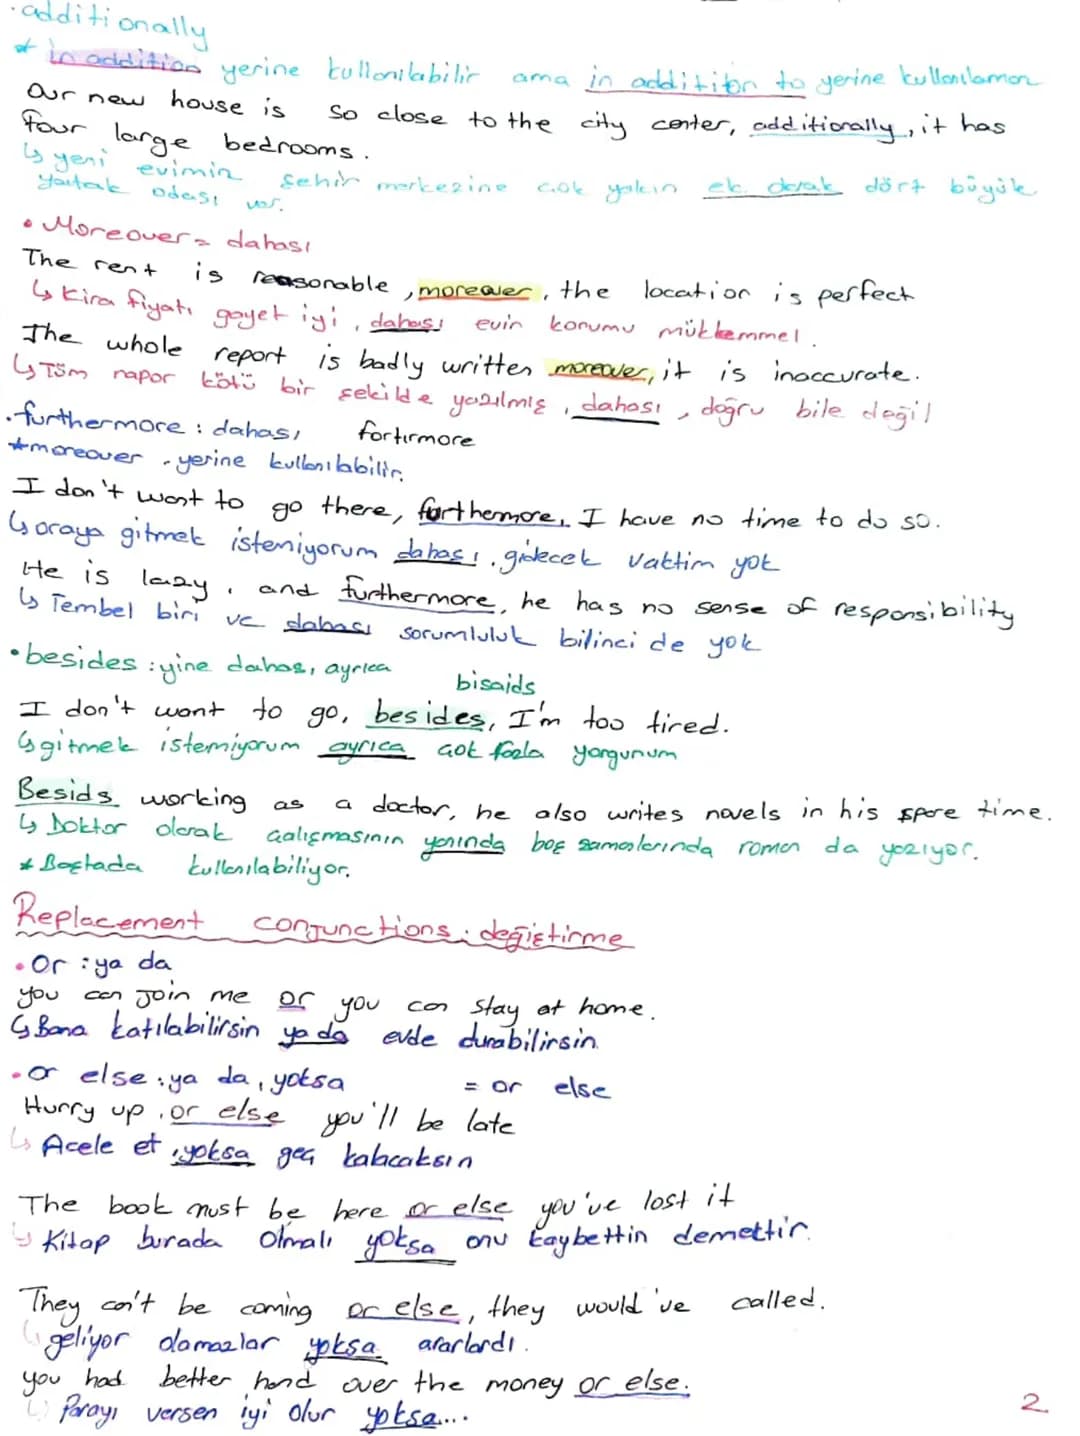 · additionally
* in addition yerine kullanılabilir ama in addition to yerine kullanılamaz
Our new house is so close to the city center, additionally, it has
four large bedrooms.
↳ yeni evimiz şehir merkezine çok yakın ek olarak dört büyük
yatak odası var.
• Moreover = dahası
The rent is reasonable, moreover, the location is perfect
↳ Kira fiyatı gayet iyi, dahası evin konumu mükkemmel.
The whole report is badly written moreover, it is inaccurate.
↳ Tüm rapor kötü bir şekilde yazılmış, dahası, doğru bile değil
• furthermore : dahası fortırmore
* moreover yerine kullanılabilir.
I don't want to go there, furthermore, I have no time to do so.
↳ oraya gitmek istemiyorum dahası, gidecek vaktim yok
He is lazy, and furthermore, he has no sense of responsibility
↳ Tembel biri ve dahası sorumluluk bilinci de yok
• besides : yine dahası, ayrıca
bisaids
I don't want to go, besides, I'm too tired.
↳ gitmek istemiyorum ayrıca çok fazla yorgunum
Besids working as a doctor, he also writes novels in his spare time.
↳ Doktor olarak çalışmasının yanında boş zamanlarında roman da yazıyor.
* Baştada kullanılabiliyor.
Replacement conjunctions : değiştirme
• Or : ya da
you can join me or you can stay at home.
↳ Bana katılabilirsin ya da evde durabilirsin.
• or else : ya da, yoksa = or else
Hurry up, or else you'll be late
↳ Acele et, yoksa geç kalacaksın
The book must be here or else you've lost it
↳ Kitap burada olmalı yoksa onu kaybettin demektir.
They can't be coming or else, they would've called.
↳ geliyor olamazlar yoksa ararlardı.
you had better hand over the money or else.
↳ Parayı versen iyi olur yoksa...
2